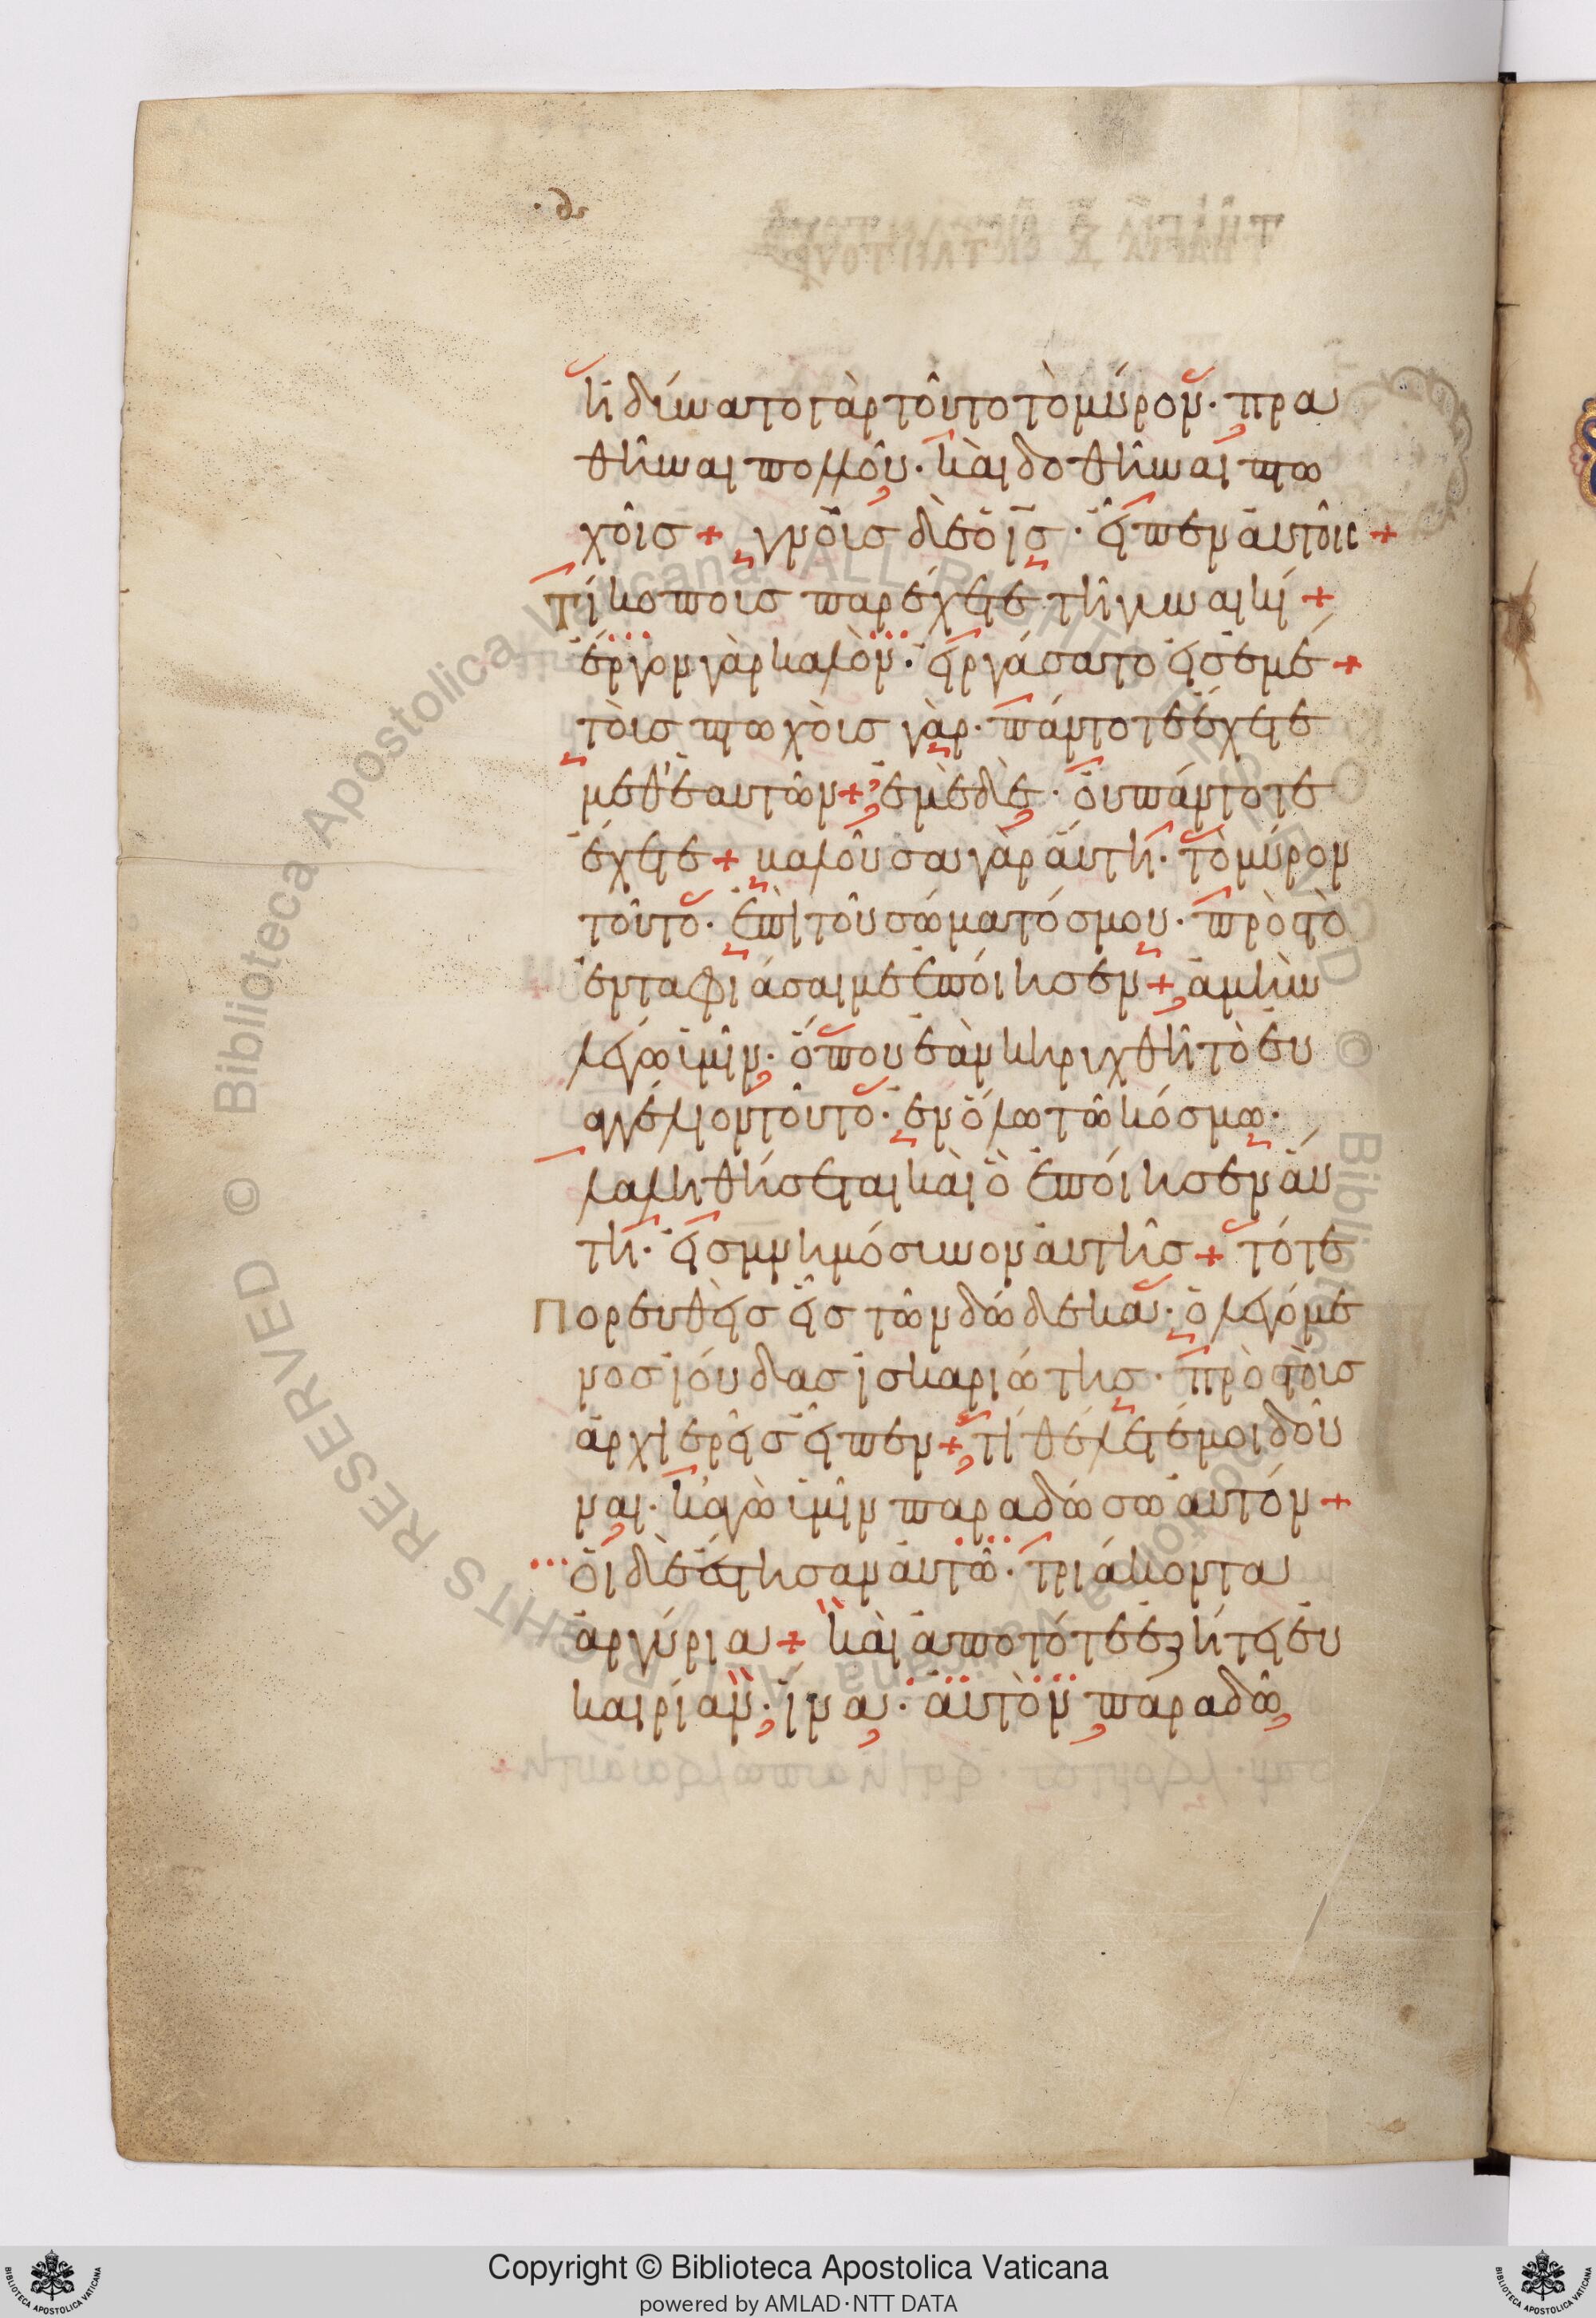 ἠδύνατο γὰρ τοῦτο τὸ μύρον· πρα
θῆναι πολλοῦ· καὶ δοθῆναι πτω
χοῖς + γνοὺς δὲ ὁ ἰς· εἶπεν αὐτοῖς +
Τί κόπους παρέχετε τῇ γυναικί +
ἔργον γὰρ καλὸν· εἰργάσατο εἰς ἐμέ +
τοὺς πτωχοὺς γὰρ· πάντοτε ἔχετε
μεθ' ἑαυτῶν + ἐμὲ δὲ· οὐ πάντοτε
ἔχετε + βαλοῦσα γὰρ αὕτη· τὸ μύρον
τοῦτο· ἐπὶ τοῦ σώματός μου· πρὸς τὸ
ἐνταφιάσαι με ἐποίησεν + ἀμὴν
λέγω ὑμῖν· ὅπου ἐὰν κηρυχθῇ τὸ εὐ
αγγέλιον τοῦτο· ἐν ὅλω τῶ κόσμω·
λαληθήσεται καὶ ὃ ἐποίησεν αὕ
τη· εἰς μνημόσυνον αὐτῆς + τότε
Πορευθεὶς εἷς τῶν δώδεκα· ὁ λεγόμε
νος ἰούδας ἰσκαριώτης· πρὸς τοὺς
ἀρχιερεῖς εἶπεν + τί θέλετέ μοι δοῦ
ναι· κἀγὼ ὑμῖν παραδώσω αὐτόν +
οἱ δὲ ἔστησαν αὐτῶ· τριάκοντα
ἀργύρια + καὶ ἀπὸ τότε ἐζήτει εὐ
καιρίαν· ἵνα· αὐτὸν παραδῶ
© Biblioteca Apostolica Vaticana ALL RIGHTS RESERVED
Copyright © Biblioteca Apostolica Vaticana
powered by AMLAD·NTT DATA
BIBLIOTECA APOSTOLICA VATICANA
BIBLIOTECA APOSTOLICA VATICANA